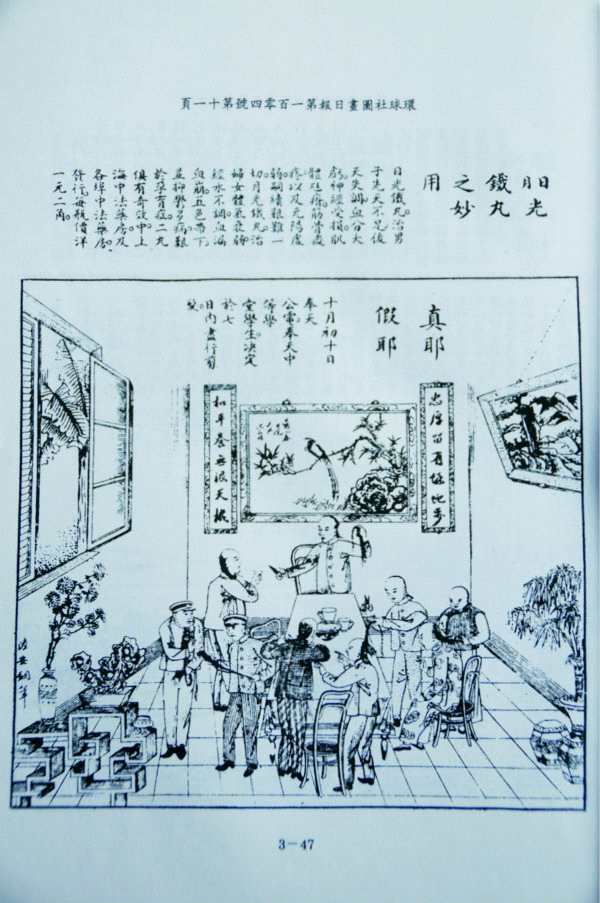 環球社圖畫日報第一百零四號第十一頁
日月光
鐵丸
之妙
用
日光鐵丸治男
子先天不足後
天失調血分大
虧神經受損肌
體尪瘠筋骨痠
疼以及元陽虛
弱嗣續艱難一
切月光鐵丸治
婦女體氣衰弱
經水不調血漏
血崩五色帶下
並抑鬱多病艱
於孕育症二丸
俱有奇效。中上
海中法藥房及
各埠中法藥房。
發行每瓶價洋
一元二角。
真耶
假耶
十月初十日
奉天
公電奉天中
等學
堂學生決定
於七
日內盡行剪
髮
忠厚留有餘地步
和平養無限天機
3－47